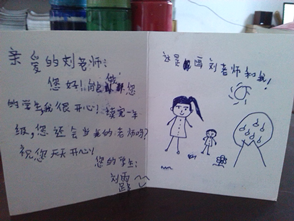 亲爱的刘老师:
您好!
您
的学生我很开心!
一年
级,您还会当我的老师吗?
祝您天天开心!
您的学生:
刘
这是 刘老师和我!